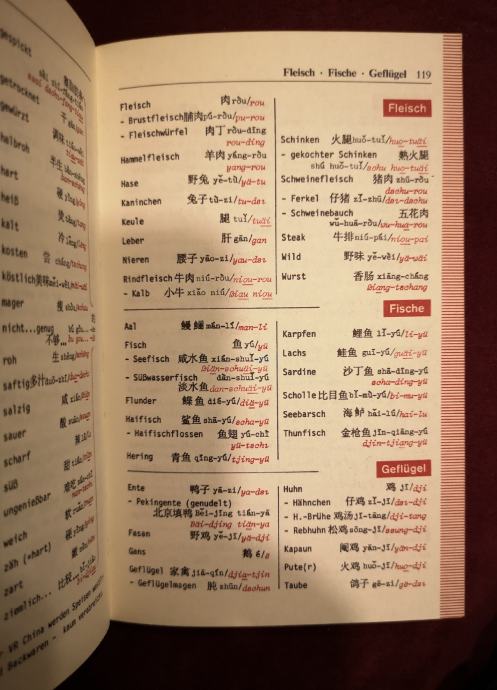 gespickt
getrocknet
gewürzt
halbroh
hart
heiß
kalt
kosten 尝
köstlich 美味
mager 瘦
nicht...genug
不够...
roh 生
saftig 多汁
salzig 咸
sauer 酸
scharf 辣
süß 甜
ungenießbar
weich 软
zäh (=hart) 硬
zart 嫩
ziemlich... 比较...
Fleisch · Fische · Geflügel 119
Fleisch 肉 ròu/rou
- Brustfleisch 脯肉 pú-ròu/pu-rou
- Fleischwürfel 肉丁 ròu-dīng
rou-ding
Hammelfleisch 羊肉 yáng-ròu
yang-rou
Hase 野兔 yě-tù/yä-tu
Kaninchen 兔子 tù-zi/tu-dsı
Keule 腿 tuǐ/tuäi
Leber 肝 gān/gan
Nieren 腰子 yāo-zi/yau-dsı
Rindfleisch 牛肉 niú-ròu/niou-rou
- Kalb 小牛 xiǎo niú/ßiau niou
Fleisch
Schinken 火腿 huǒ-tuǐ/huo-tuäi
- gekochter Schinken 熟火腿
shú huǒ-tuǐ/schu huo-tuäi
Schweinefleisch 猪肉 zhū-ròu/
dschu-rou
- Ferkel 仔猪 zǐ-zhū/dsı-dschu
- Schweinebauch 五花肉
wǔ-huā-ròu/wu-hua-rou
Steak 牛排 niú-pái/niou-pai
Wild 野味 yě-wèi/yä-wäi
Wurst 香肠 xiāng-cháng
ßiang-tschang
Aal 鳗鲡 mán-lí/man-li
Fisch 鱼 yú/yü
- Seefisch 咸水鱼 xián-shuǐ-yú
ßiän-schuäi-yü
- Süßwasserfisch dàn-shuǐ-yú
淡水鱼 dan-schuäi-yü
Flunder 鲽鱼 dié-yú/diä-yü
Haifisch 鲨鱼 shā-yú/scha-yü
- Haifischflossen 鱼翅 yú-chì
yü-tschı
Hering 青鱼 qīng-yú/tjing-yü
Fische
Karpfen 鲤鱼 lǐ-yú/li-yü
Lachs 鲑鱼 guī-yú/guäi-yü
Sardine 沙丁鱼 shā-dīng-yú
scha-ding-yü
Scholle 比目鱼 bǐ-mù-yú/bi-mu-yü
Seebarsch 海鲈 hǎi-lú/hai-lu
Thunfisch 金枪鱼 jīn-qiāng-yú
djin-tjiang-yü
Ente 鸭子 yā-zi/ya-dsı
- Pekingente (genudelt)
北京填鸭 Běi-jīng tián-yā
Bäi-djing tiän-ya
Fasan 野鸡 yě-jī/yä-dji
Gans 鹅 é/ö
Geflügel 家禽 jiā-qín/djia-tjin
- Geflügelmagen 肫 zhūn/dschun
Geflügel
Huhn 鸡 jī/dji
- Hähnchen 仔鸡 zǐ-jī/dsı-dji
- H.-Brühe 鸡汤 jī-tāng/dji-tang
- Rebhuhn 松鸡 sōng-jī/ssung-dji
Kapaun 阉鸡 yān-jī/yän-dji
Pute(r) 火鸡 huǒ-jī/huo-dji
Taube 鸽子 gē-zi/gö-dsı